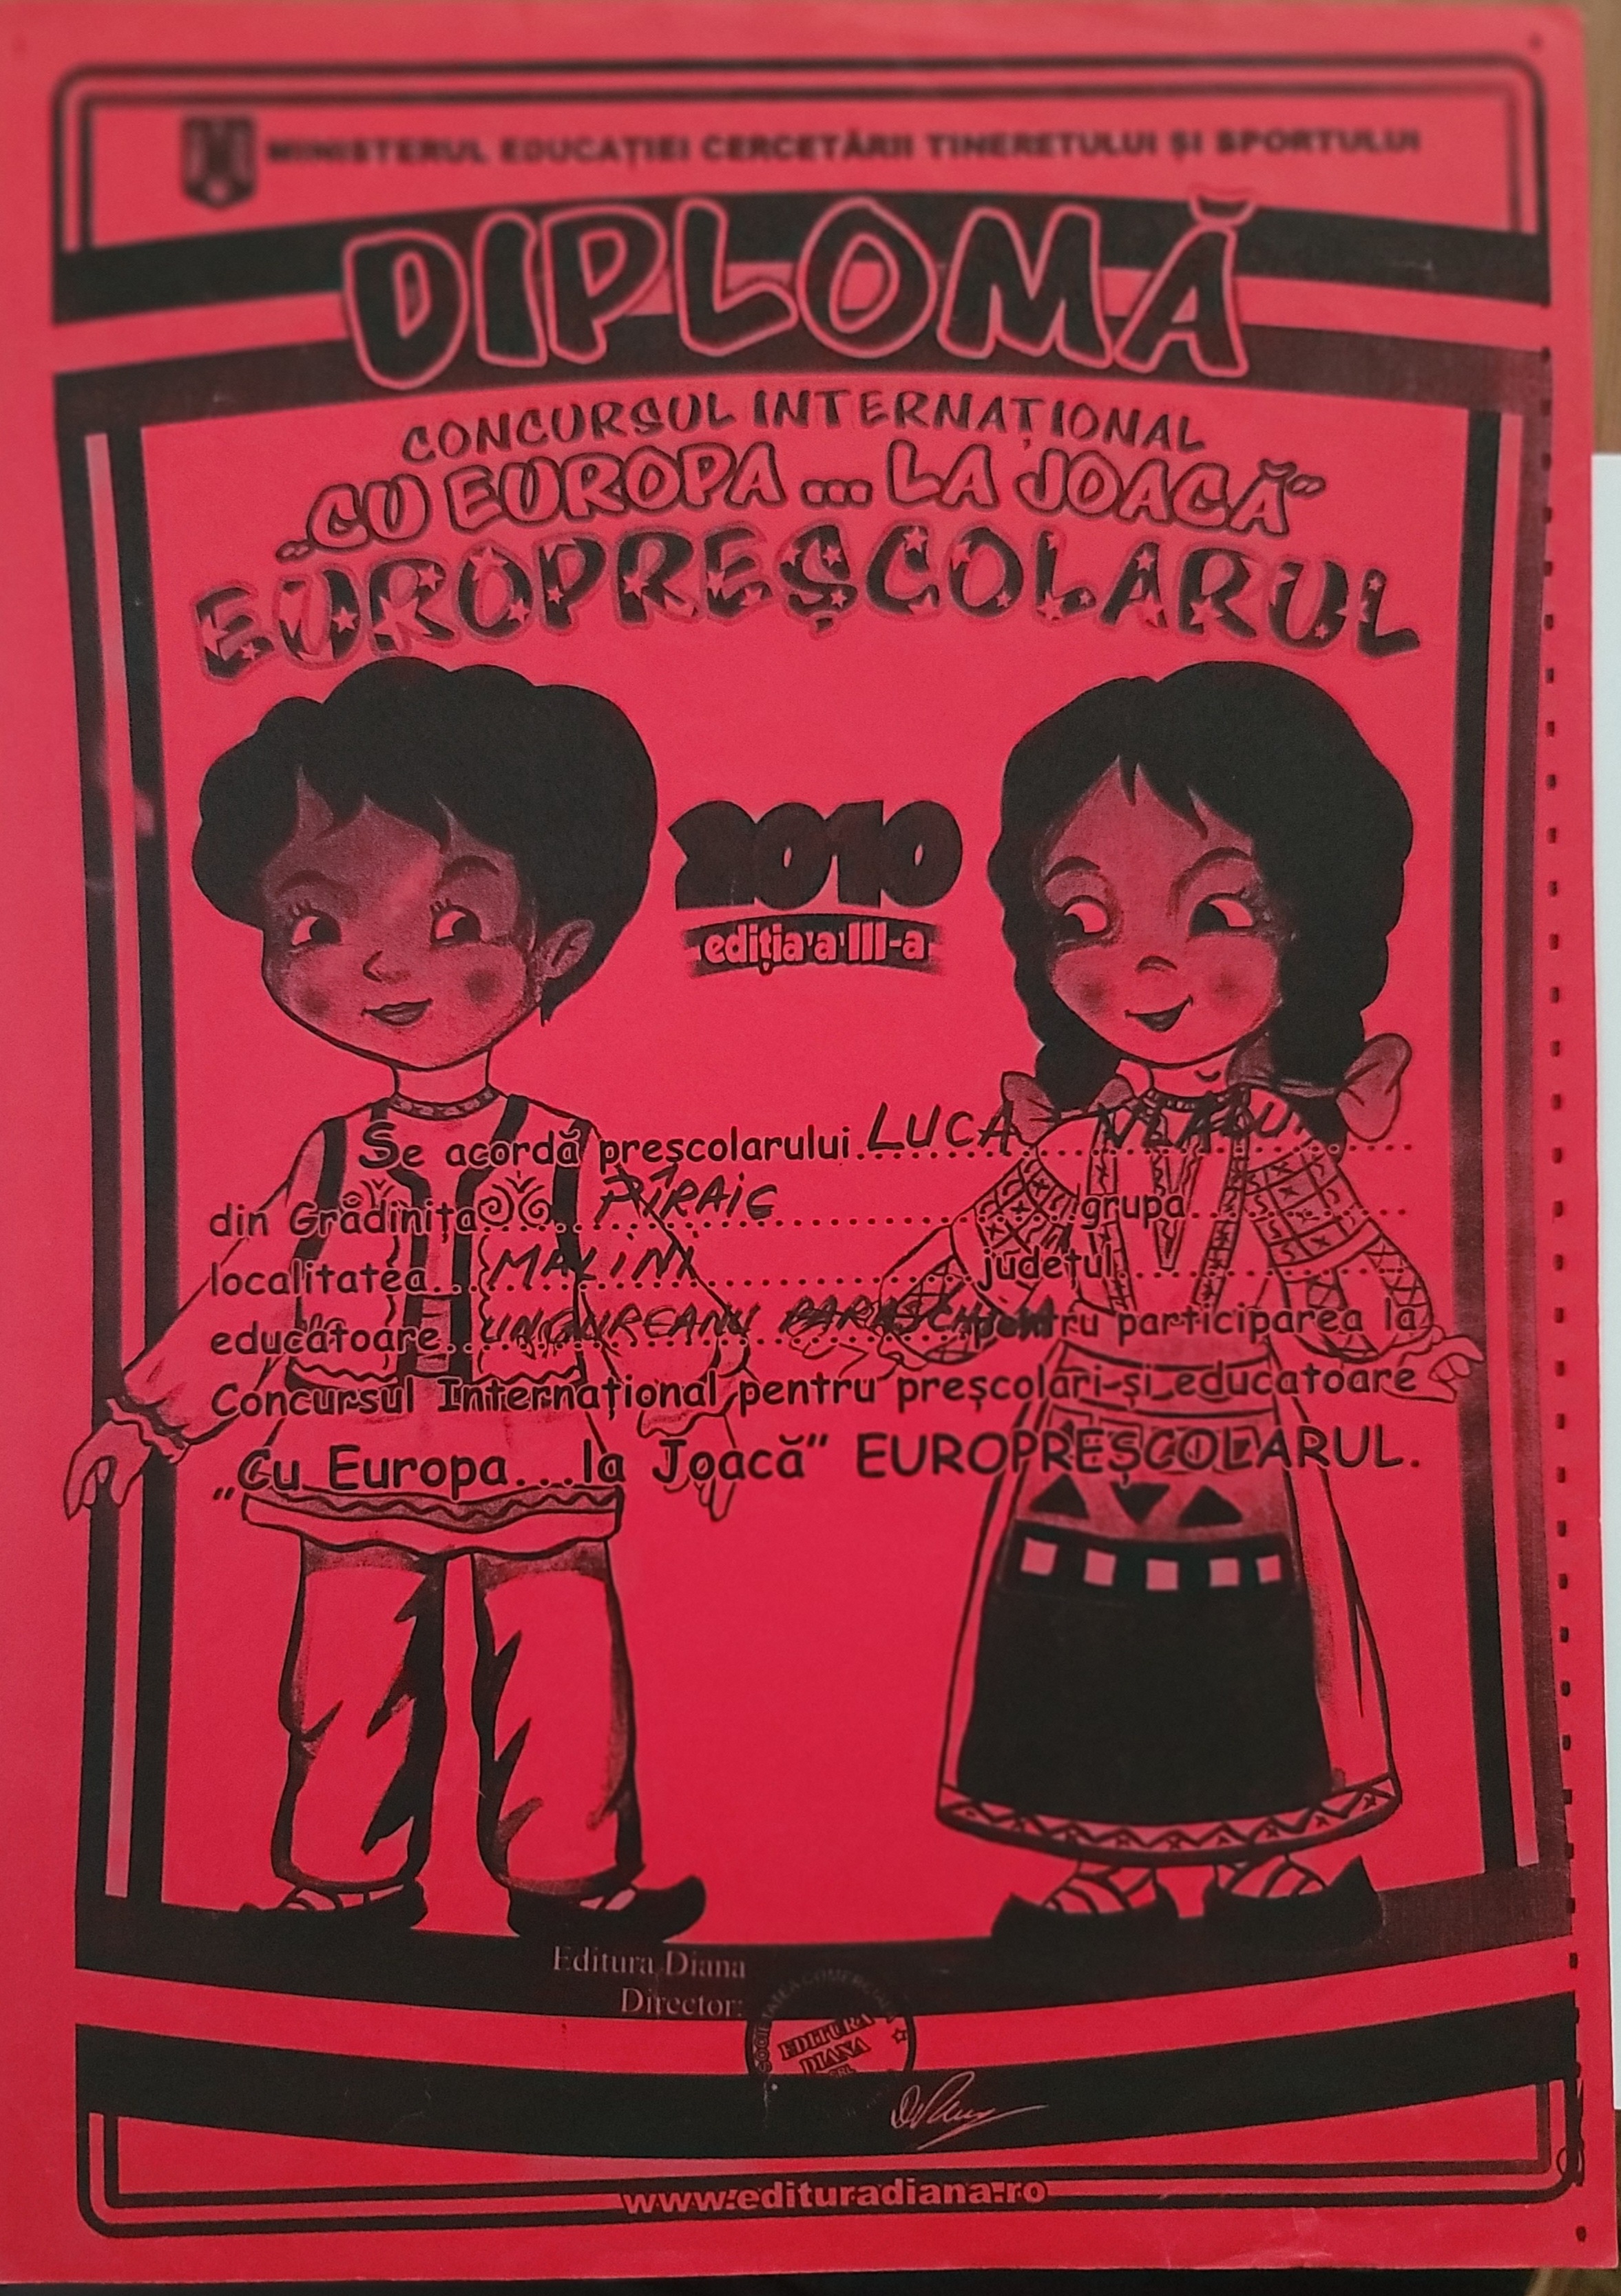 MINISTERUL EDUCAȚIEI CERCETĂRII TINERETULUI ȘI SPORTULUI
DIPLOMĂ
CONCURSUL INTERNAȚIONAL
„CU EUROPA ... LA JOACĂ”
EUROPREȘCOLARUL
2010
ediția a III-a
Se acordă preșcolarului LUCA
din Grădinița PÎRAIE grupa
localitatea MALINI județul
educătoare UNGUREANU PARASCHIVA pentru participarea la
Concursul Internațional pentru preșcolari și educatoare
„Cu Europa...la Joacă” EUROPREȘCOLARUL.
Editura Diana
Director:
SOCIETATEA COMERCIALĂ
EDITURA
DIANA
SRL
www.edituradiana.ro